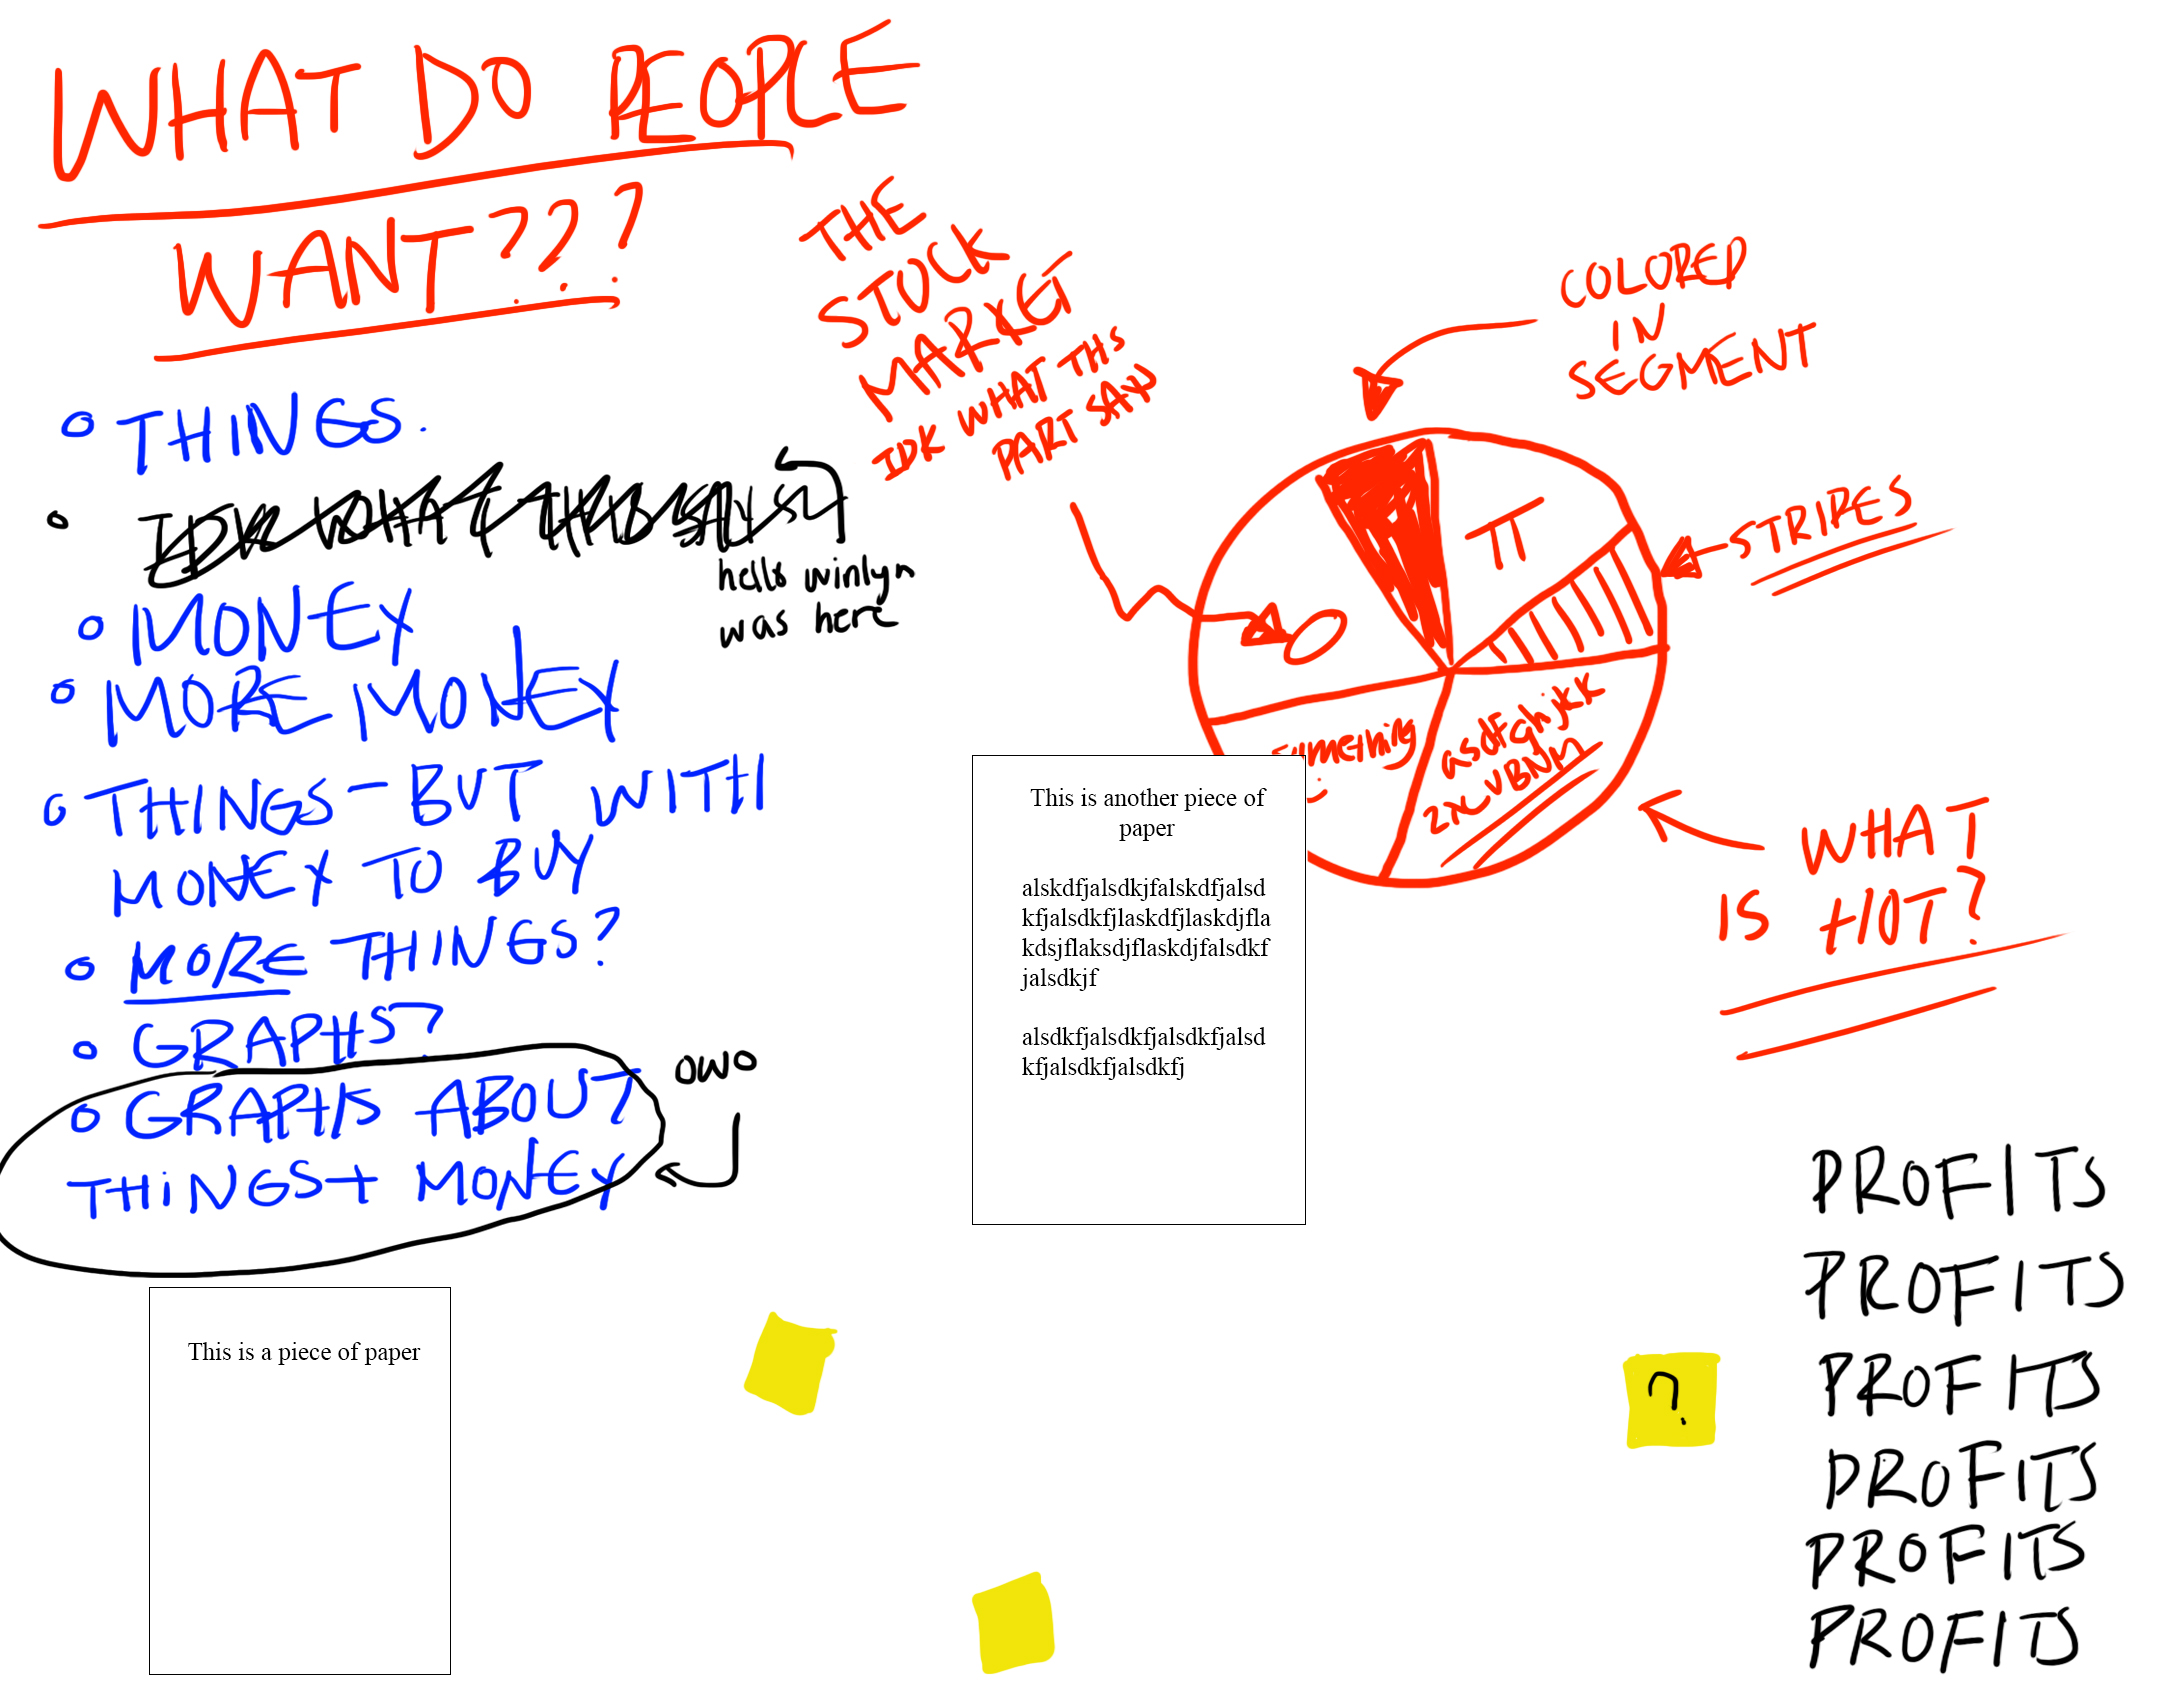 WHAT DO PEOPLE
WANT???
THINGS.
IDK WHAT THIS SAYS
hello winlyn
was here
MONEY
MORE MONEY
THINGS - BUT WITH
MONEY TO BUY
MORE THINGS?
GRAPHS?
GRAPHS ABOUT
THINGS + MONEY
owo
This is a piece of paper
THE
STOCK
MARKET
IDK WHAT THS
PART SAY
COLORED
IN
SEGMENT
TT
STRIPES
something
asdfghjkk
zxcVBNM
WHAT
IS HOT?
This is another piece of
paper
alskdfjalsdkjfalskdfjalsd
kfjalsdkfjlaskdfjlaskdjfla
kdsjflaksdjflaskdjfalsdkf
jalsdkjf
alsdkfjalsdkfjalsdkfjalsd
kfjalsdkfjalsdkfj
?
PROFITS
PROFITS
PROFITS
PROFITS
PROFITS
PROFITS